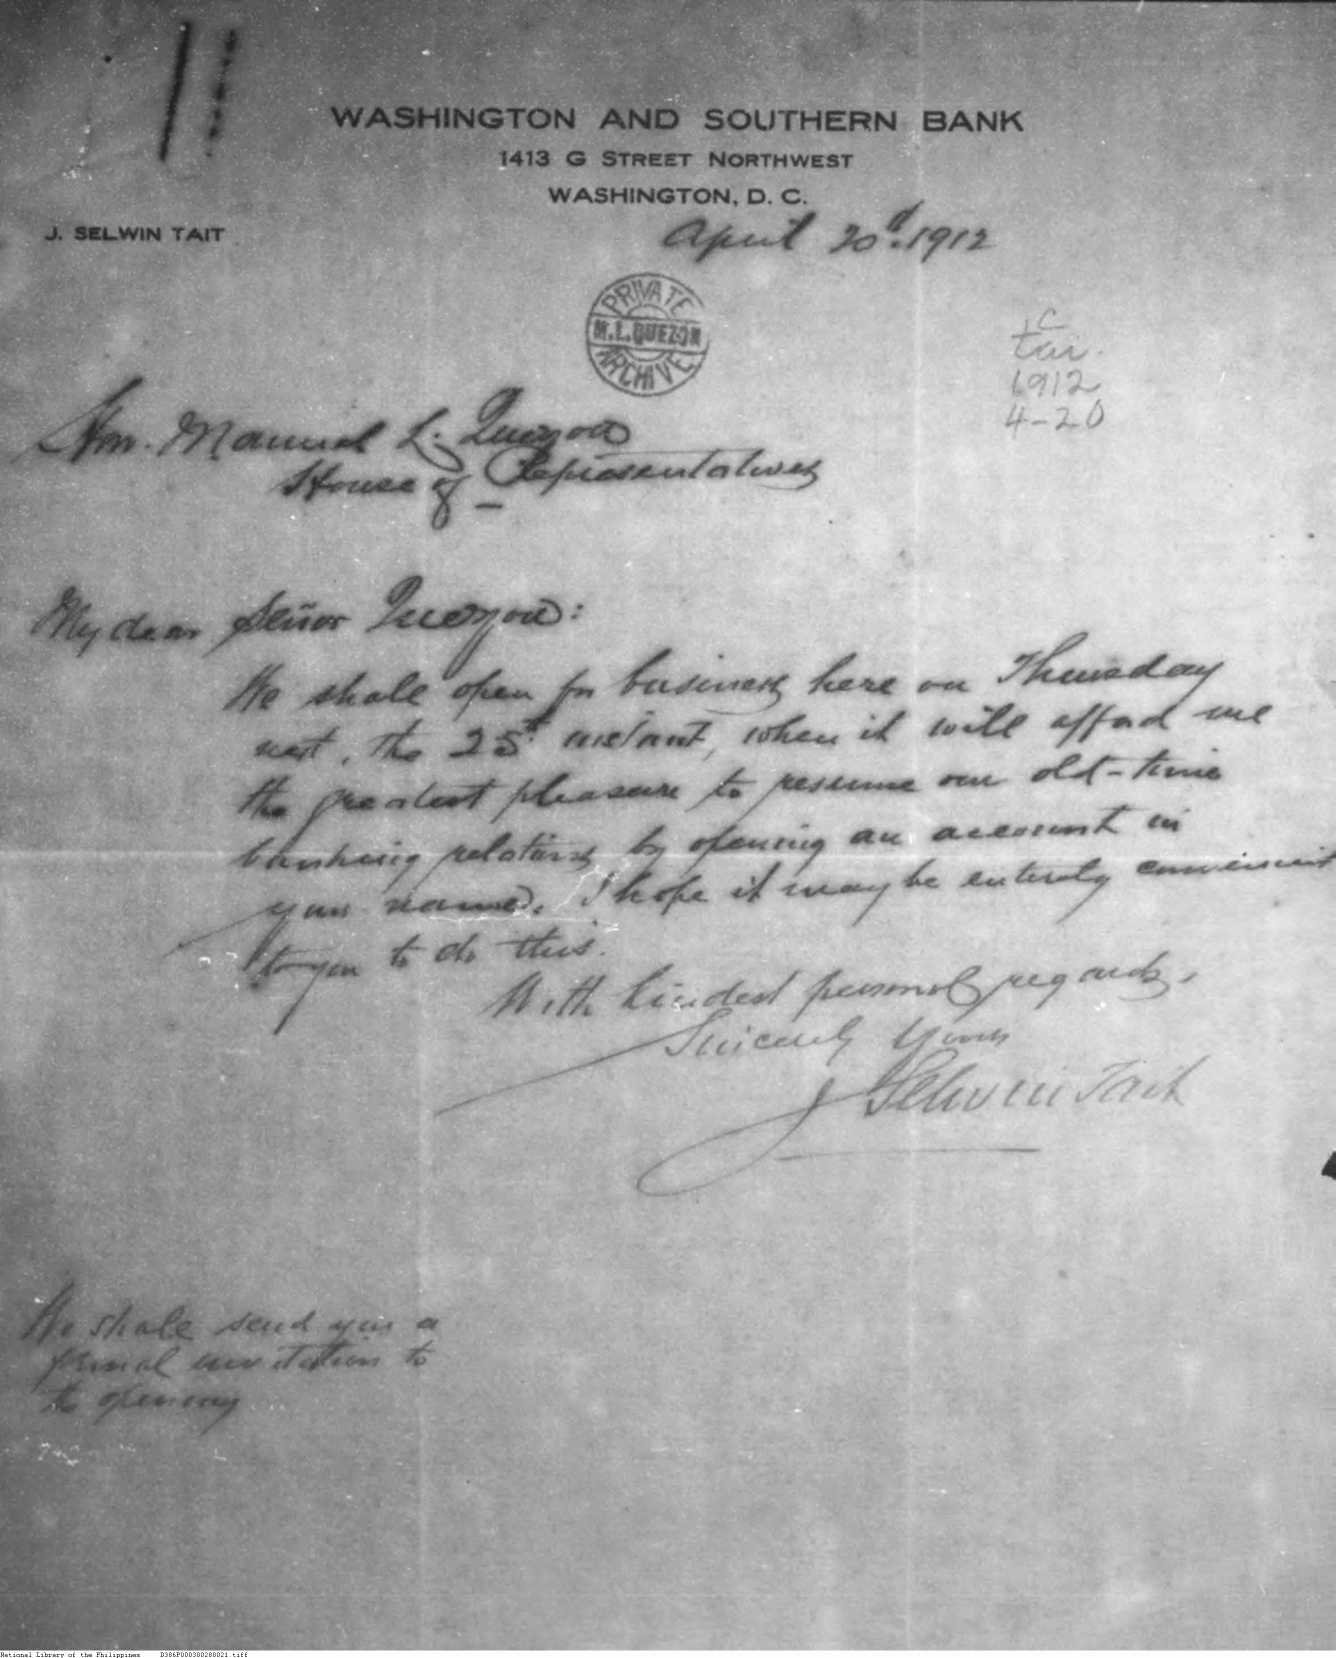 WASHINGTON AND SOUTHERN BANK
1413 G STREET NORTHWEST
WASHINGTON, D. C.
J. SELWIN TAIT
April 20d. 1912
PRIVATE
M.L. QUEZON
ARCHIVE
1C
tai.
1912
4-20
Hon. Manuel L. Quezon
House of Representatives
My dear Señor Quezon:
We shall open for business here on Thursday
next, the 25th instant, when it will afford me
the greatest pleasure to resume our old-time
banking relations by opening an account in
your name. I hope it may be entirely convenient
to you to do this.
With kindest personal regards,
Sincerely Yours
J Selwin Tait
We shall send you a
formal invitation to
the opening
National Library of the Philippines D386P000300280021.tiff